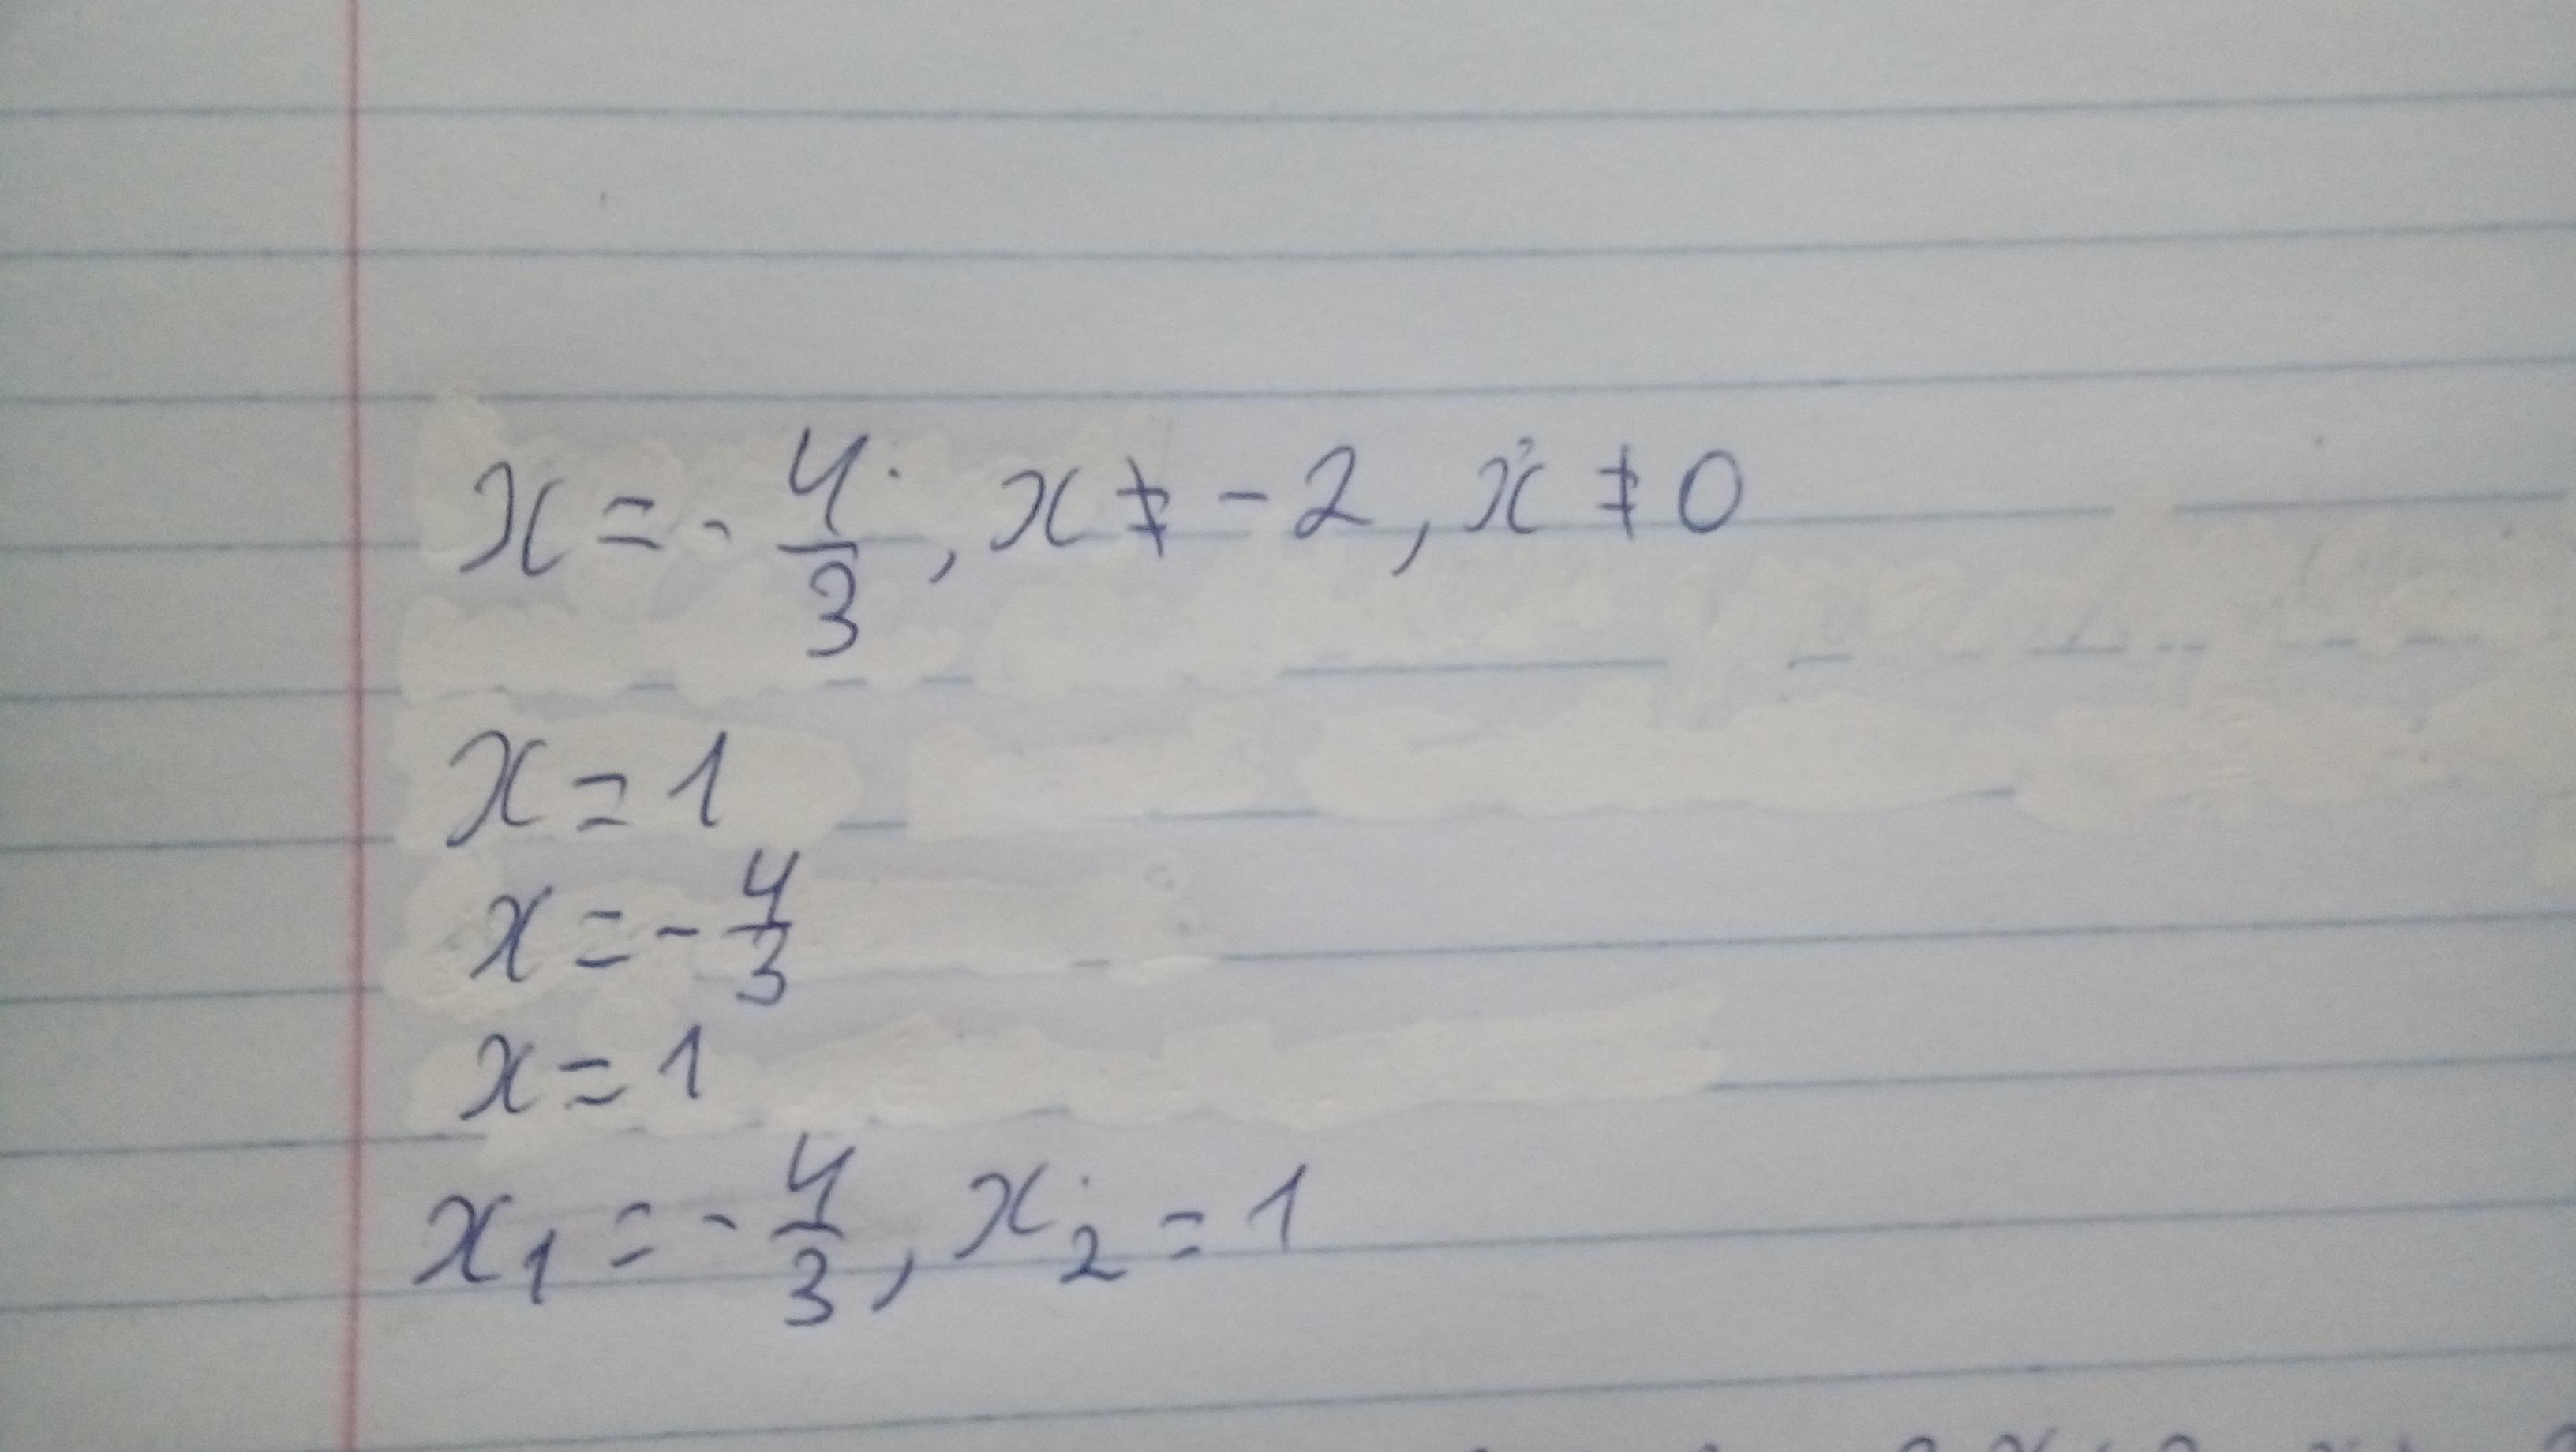 x = - 4/3, x ≠ - 2, x ≠ 0
x = 1
x = - 4/3
x = 1
x₁ = - 4/3, x₂ = 1